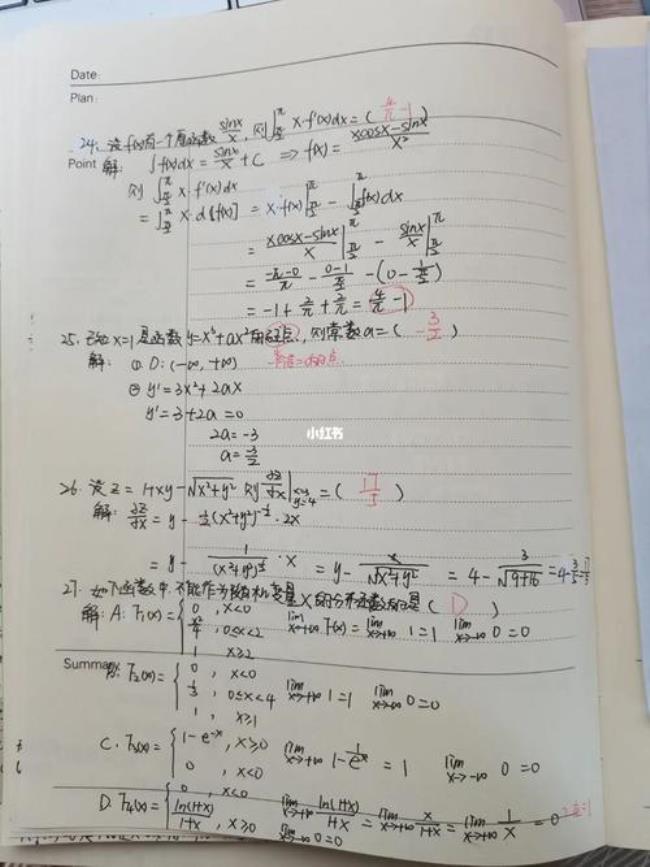 Date:
Plan:
24. 设f(x)有一个原函数 sinx/x, 则∫_{π/2}^{π} x·f'(x)dx = ( 4/π -1 )
Point 解: ∫f(x)dx = sinx/x + C ⇒ f(x) = (xcosx-sinx)/x²
则 ∫_{π/2}^{π} x·f'(x)dx
= ∫_{π/2}^{π} x·d[f(x)] = x·f(x)|_{π/2}^{π} - ∫_{π/2}^{π} f(x)dx
= (xcosx-sinx)/x |_{π/2}^{π} - sinx/x |_{π/2}^{π}
= (-π-0)/π - (0-1)/(π/2) - (0 - 1/(π/2))
= -1 + 2/π + 2/π = 4/π - 1
25. 已知x=1是函数y=x³+ax²的驻点, 则常数a=( -3/2 )
解: ① D: (-∞, +∞)
② y'=3x²+2ax
y'=3+2a=0
2a=-3
a=-3/2
小红书
26. 设z=1+xy-√(x²+y²) 则 ∂z/∂x |_{x=3 y=4} = ( 17/5 )
解: ∂z/∂x = y - ½(x²+y²)^{-½}·2x
= y - 1/(x²+y²)^{½} · x = y - x/√(x²+y²) = 4 - 3/√(9+16) = 4-3/5=17/5
27. 如下函数中,不能作为随机变量X的分布函数的是 ( D )
解: A: F₁(x)= { 0, x<0
x²/4, 0≤x<2 lim_{x→+∞} F(x) = lim_{x→+∞} 1=1 lim_{x→-∞} 0=0
1 x≥2
Summary: B: F₂(x)= { 0, x<0
1/3, 0≤x<4 lim_{x→+∞} 1=1 lim_{x→-∞} 0=0
1, x≥1
C. F₃(x)= { 1-e^{-x}, x≥0 lim_{x→+∞} 1-1/e^x = 1 lim_{x→-∞} 0=0
0, x<0
D. F₄(x)= { 0, x<0
ln(1+x)/(1+x), x≥0 lim_{x→+∞} ln(1+x)/(1+x) = lim_{x→+∞} x/(1+x) = lim_{x→+∞} 1/x = 0
lim_{x→-∞} 0=0